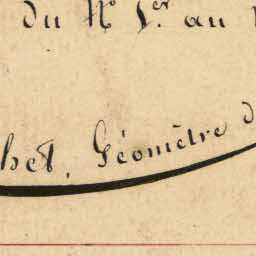 du N° 1er au
het, Géomètre d